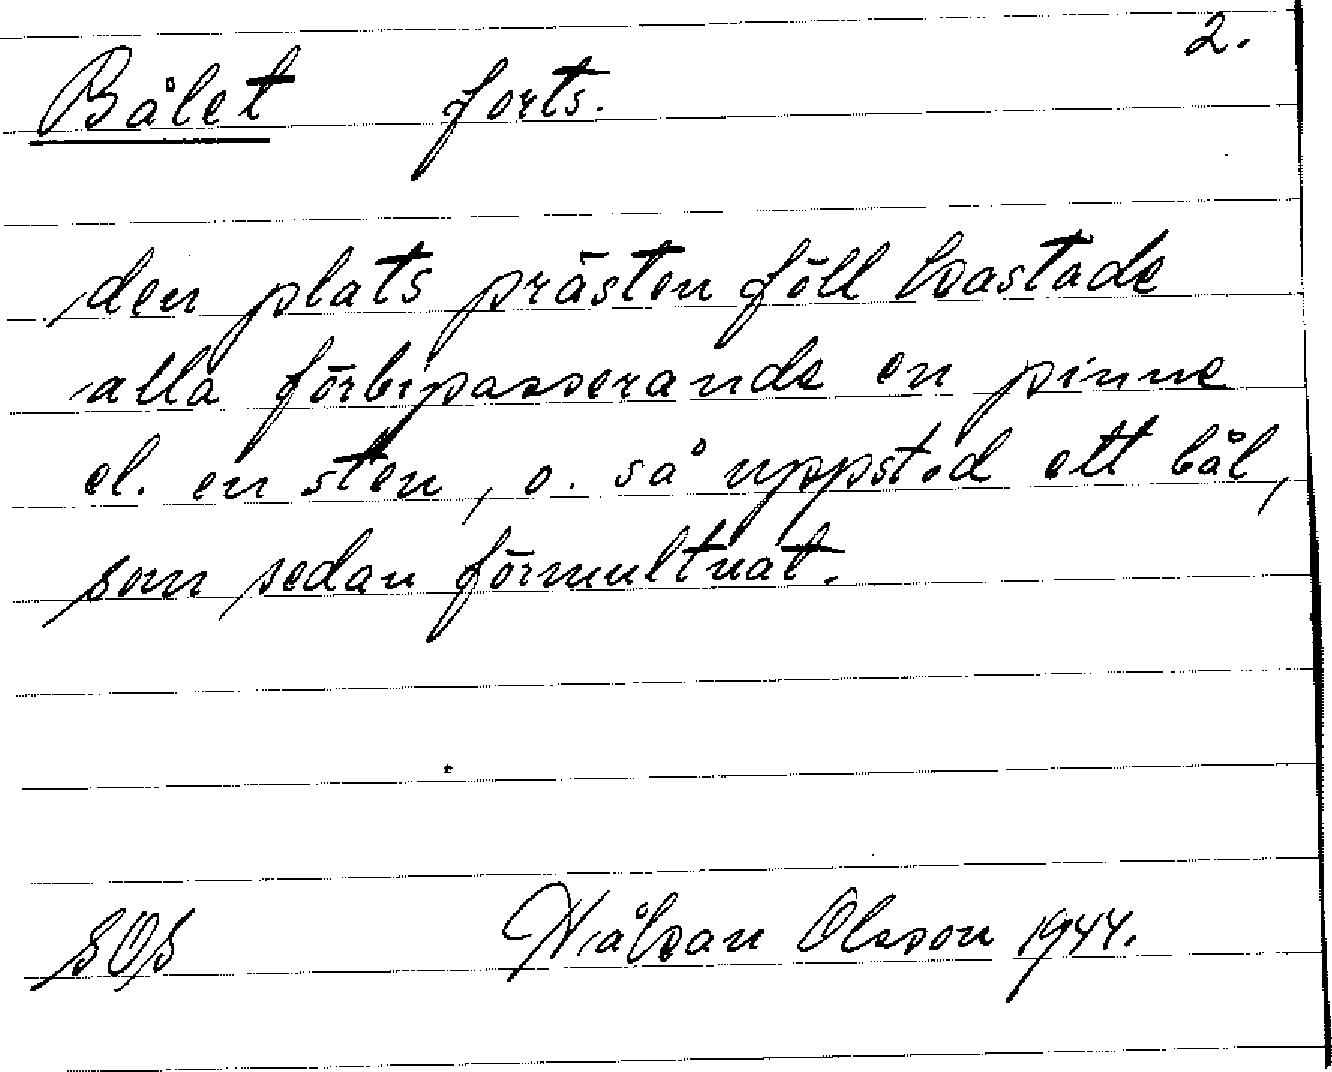 2.
Bålet forts.
den plats prästen föll kastade
alla förbipasserande en pinne
el. en sten, o. så uppstod ett bål,
som sedan förmultnat.
SOS Olsson 1944.